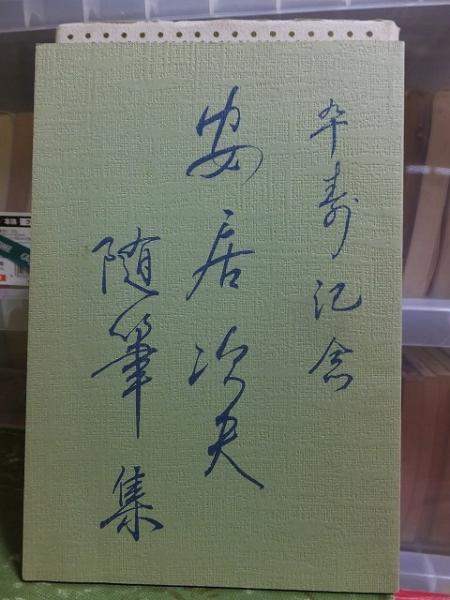 卆寿記念
安居次夫
随筆集